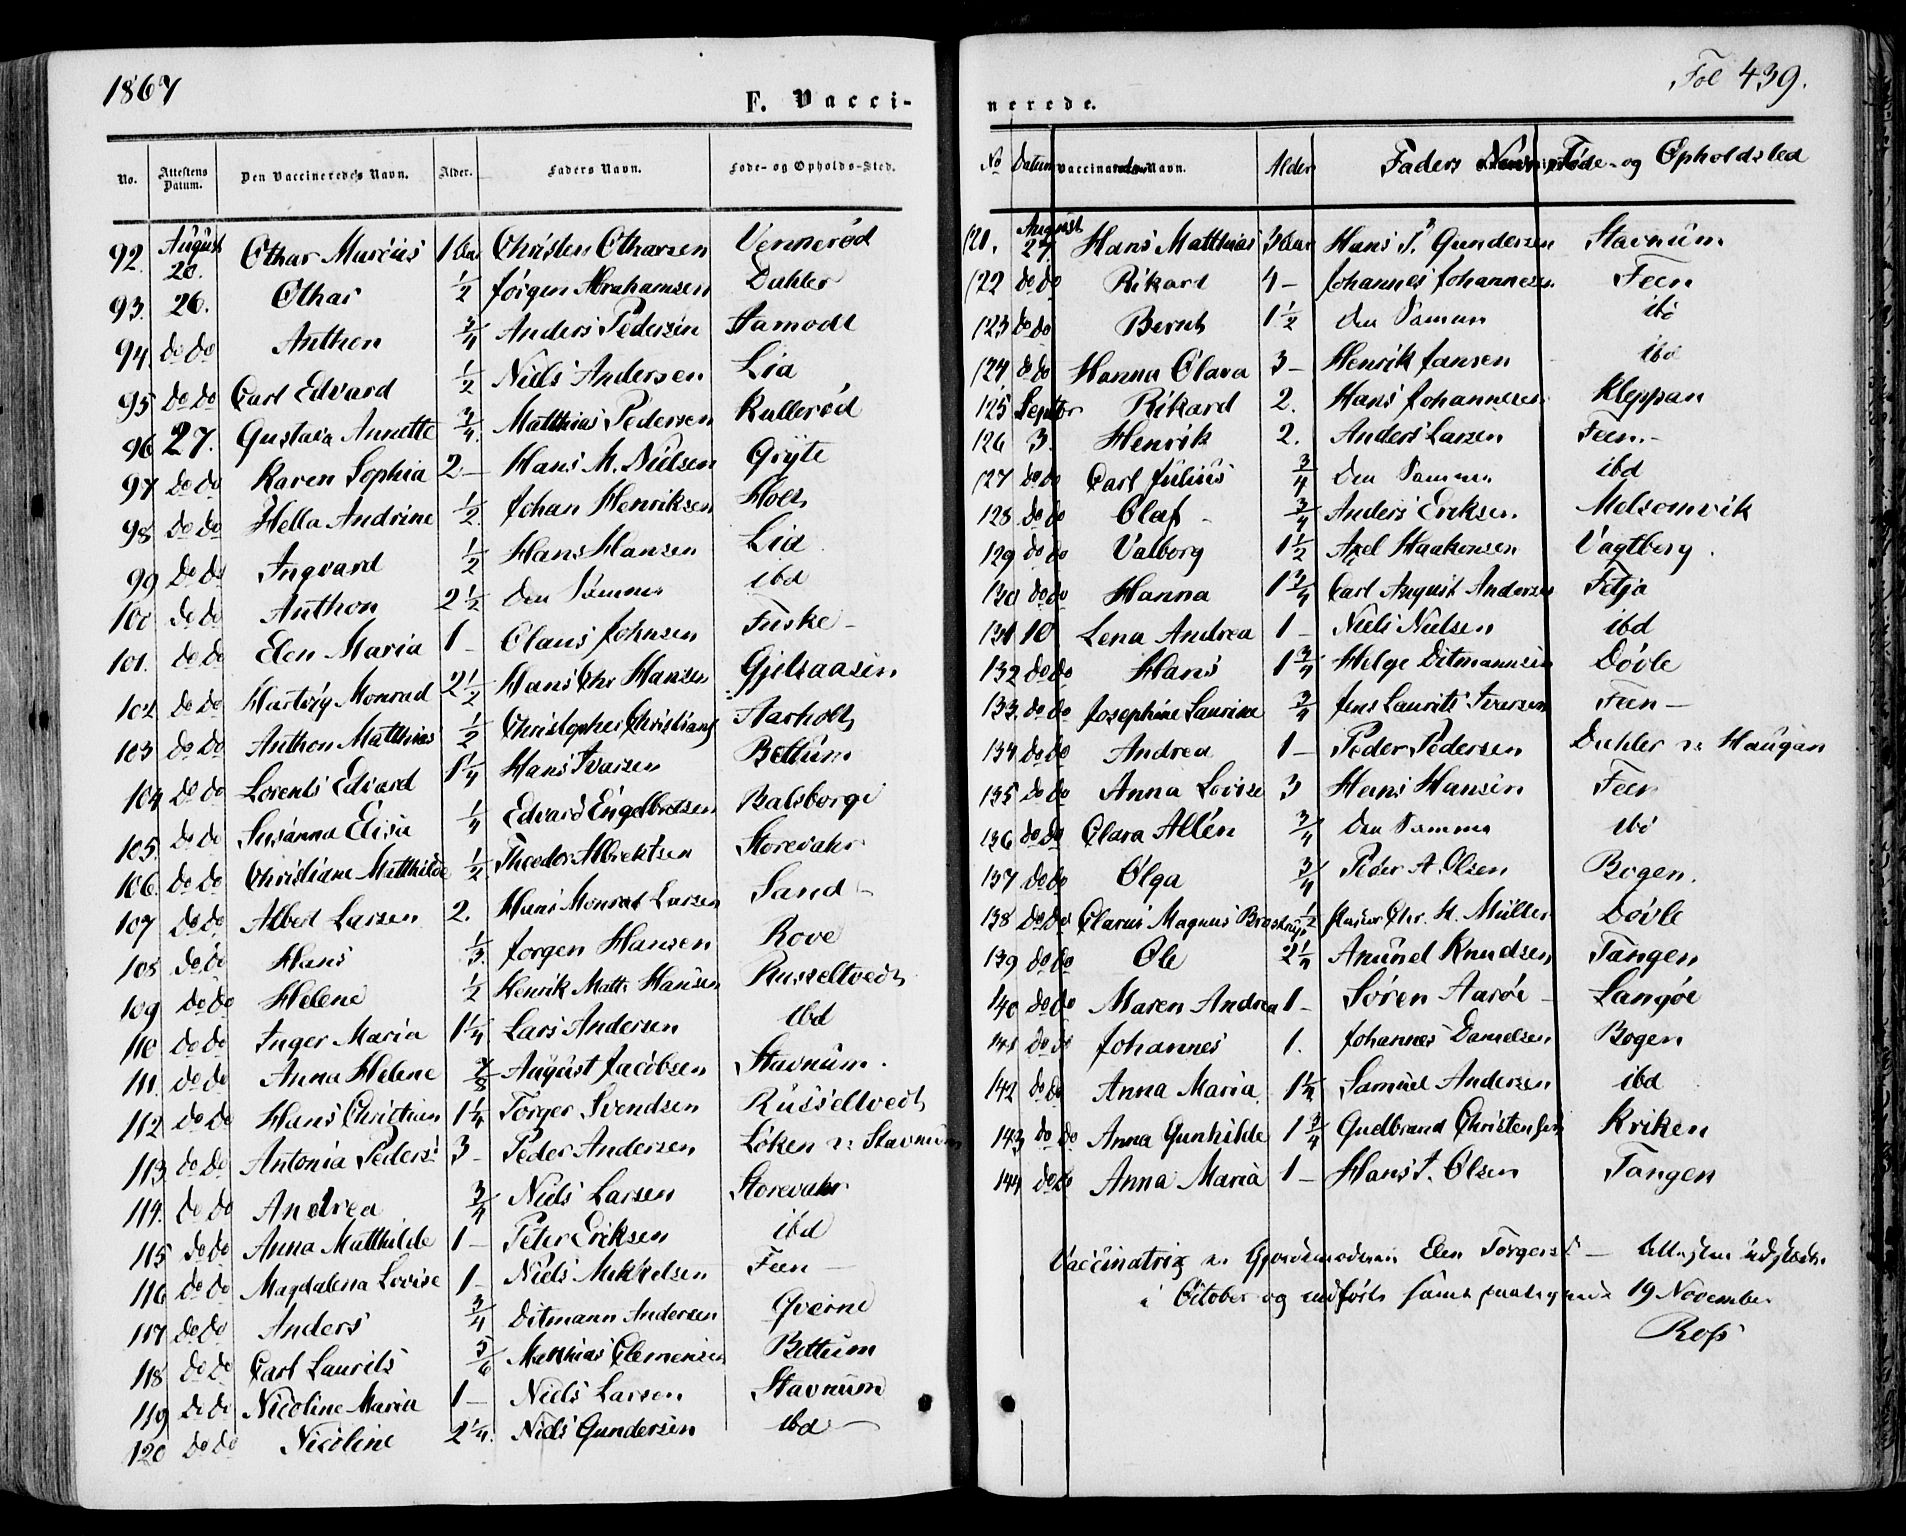 1867
F. Vacci-
No. Attestens Datum. Den Vaccineredes Navn. Alder. Faders Navn. Føde- og Opholds-Sted.
92. August 20. Othar Marius 1 Aar Christen Otharsen Vennerød
93. 26. Othar 1/2 Jørgen Abrahamsen Dahler
94. do do Anthon 3/4 Anders Pedersen
95 do do Carl Edvard 1/2 Niels Andersen Lia
96 27. Gustava Annette 3/4. Matthias Pedersen Rullerød
97 do do Karen Sophia 2 – Hans M. Nielsen Gryte
98 do do Hella Andrine 1/2. Johan Henriksen Holt
99 do do Ingvard 1/2 Hans Hansen Lia
100 do do Anthon 2 1/2 Den Samme ibd
101. do do Elen Maria 1 – Olaus Johnsen Fuske –
102 do do Hartvig Monrad 2 1/2 Hans Chr Hansen Gjelsaasen
103 do do Anthon Matthias 1/2 Christopher Christians Aarholt
104 do do Lorents Edvard 1 1/4 Hans Ivarsen Bettum
105. do do Susanna Elisa 1/4 Edvard Engelbretsen Basborge
106. do do Christiane Matthilde 1/2 Theodor Albrektsen Storevahr
107 do do Albert Larsen 2. Hans Monrad Larsen Sand –
108 do do Hans 1/3 Jørgen Hansen Rove
109 do do Helene 1/2 Henrik Matts Hansen Russeltvedt
110 do do Inger Maria 1 1/4 Lars Andersen ibd
111. do do Anna Helene 7/8 August Jacobsen Stavnum.
112 do do Hans Christian 1 1/4 Torger Svendsen Russeltvedt
113. do do Antonia Peders 3 – Peder Andersen Løken n: Stavnum
114. do do Andrea 3/4 Niels Larsen Storevahr
115 do do Anna Matthilde 1 – Peter Eriksen ibd
116 do do Magdalena Lovise 1 – Niels Mikkelsen Feen –
117 do do Anders 3/4 Ditmann Andersen Qverne
118 do do Carl Laurits 5/6 Matthias Clemensen Bettum
119 do do Nicoline Maria 1 – Niels Larsen Stavnum
120 do do Nicoline 2 1/4. Niels Gundersen ibd –
Fol 439.
nerede.
No Datum Vaccina Navn. Alder Faders Navn Føde- og Opholdsted
121. August 27 Hans Matthias 3 Aar Hans P. Gundersen Stavnum
122 do do Rikard 4 – Johannes Johannesen Feen
123 do do Bernt 1 1/2 Den Samme ibd
124 do do Hanna Olava 3 – Henrik Jansen ibd
125 Septbr Rikard 2. Hans Johannesen Kleppan
126 3. Henrik 2. Anders Larsen Feen. –
127 do do Carl Julius 3/4 Den Samme ibd
128 do do Olaf – 3/4 Anders Eriksen Melsomvik
129 do do Valborg 1 1/2 Axel Haakonsen Vagtberg.
130 do do Hanna 1 3/4 Carl August Andersen Fetja
131 10 Lena Andrea 1 – Niels Nielsen ibd
132 do do Hans 1 3/4 Helge Ditmannsen Døvle
133. do do Josephine Laurine 3/4 Jens Laurits Iversen Feen –
134 do do Andrea 1 – Peder Pedersen Dahler n: Haugan
135 do do Anna Lovise 3 Hans Hansen Feen
136 do do Clara Allén 3/4 Den Samme ibd
137 do do Olga 3/4 Peder A. Olsen Bogen.
138 do do Clarus Magnus 1/2 Chr. H. Müller Døvle
139 do do Ole 2 1/4 Amund Knudsen Tangen
140 do do Maren Andrea 1 – Søren Aarøe – Langøe
141 do do Johannes 1. Johannes Danielsen Bogen
142 do do Anna Maria 1 1/4 Samuel Andersen ibd
143 do do Anna Gunhilde 1 3/4 Gudbrand Christensen Kriken
144 do do Anna Maria 1 – Hans J. Olsen Tangen
Vaccinatrix er Gjordemoderen Elen Torgers –
i October og indførte 19 November
Ross